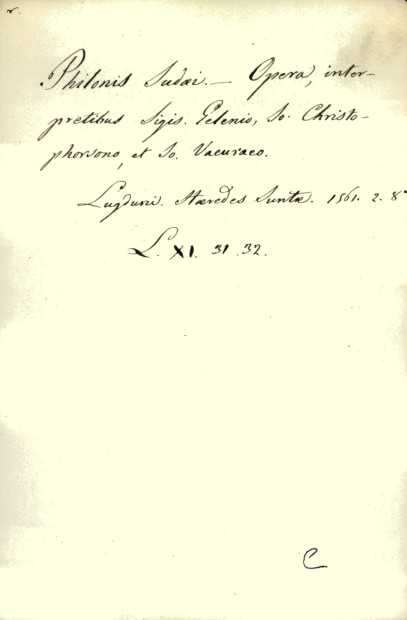 r.
Philonis Judæi. — Opera, inter-
pretibus Sigis. Gelenio, Jo. Christo-
phorsono, et Jo. Vaeuraeo.
Lugduni. Hæredes Juntæ. 1561. 2. 8º
L. XI. 31 32.
C